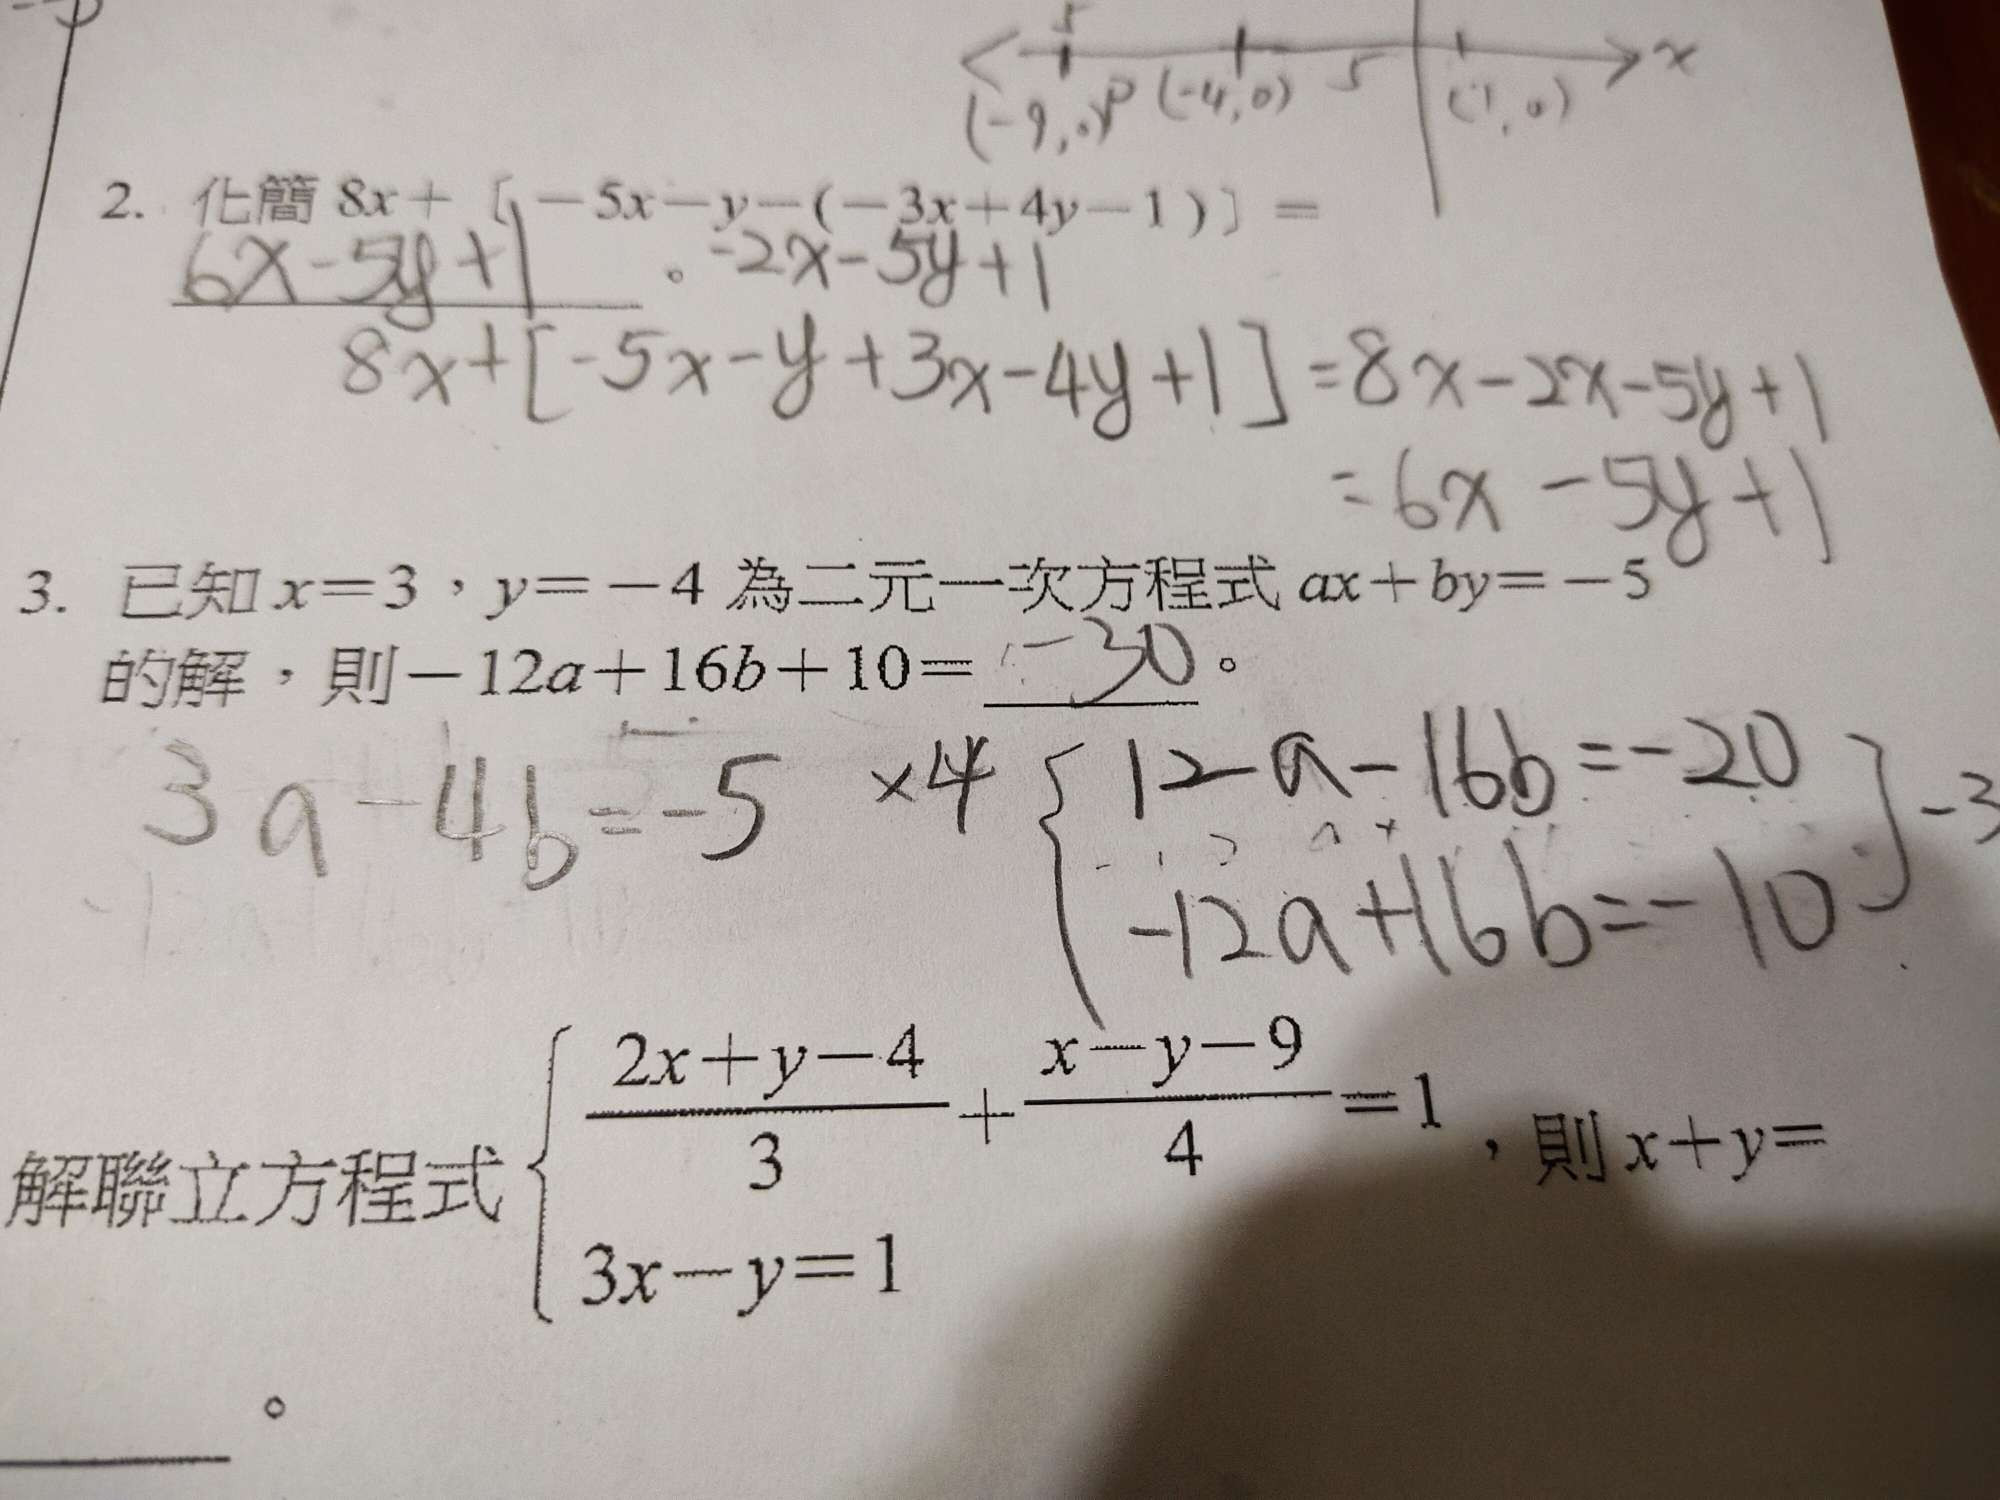 5
x
(-9,0) P (-4,0) 5 (1,0)
2. 化簡 8x+〔-5x-y-(-3x+4y-1)〕=
6x-5y+1 。 -2x-5y+1
8x+[-5x-y+3x-4y+1]=8x-2x-5y+1
=6x-5y+1
3. 已知 x=3，y=-4 為二元一次方程式 ax+by=-5
的解，則-12a+16b+10= -30 。
3a-4b=-5 ×4 {12a-16b=-20
-12a+16b=-10] -3
解聯立方程式 { (2x+y-4)/3 + (x-y-9)/4 =1 ，則 x+y=
3x-y=1
。